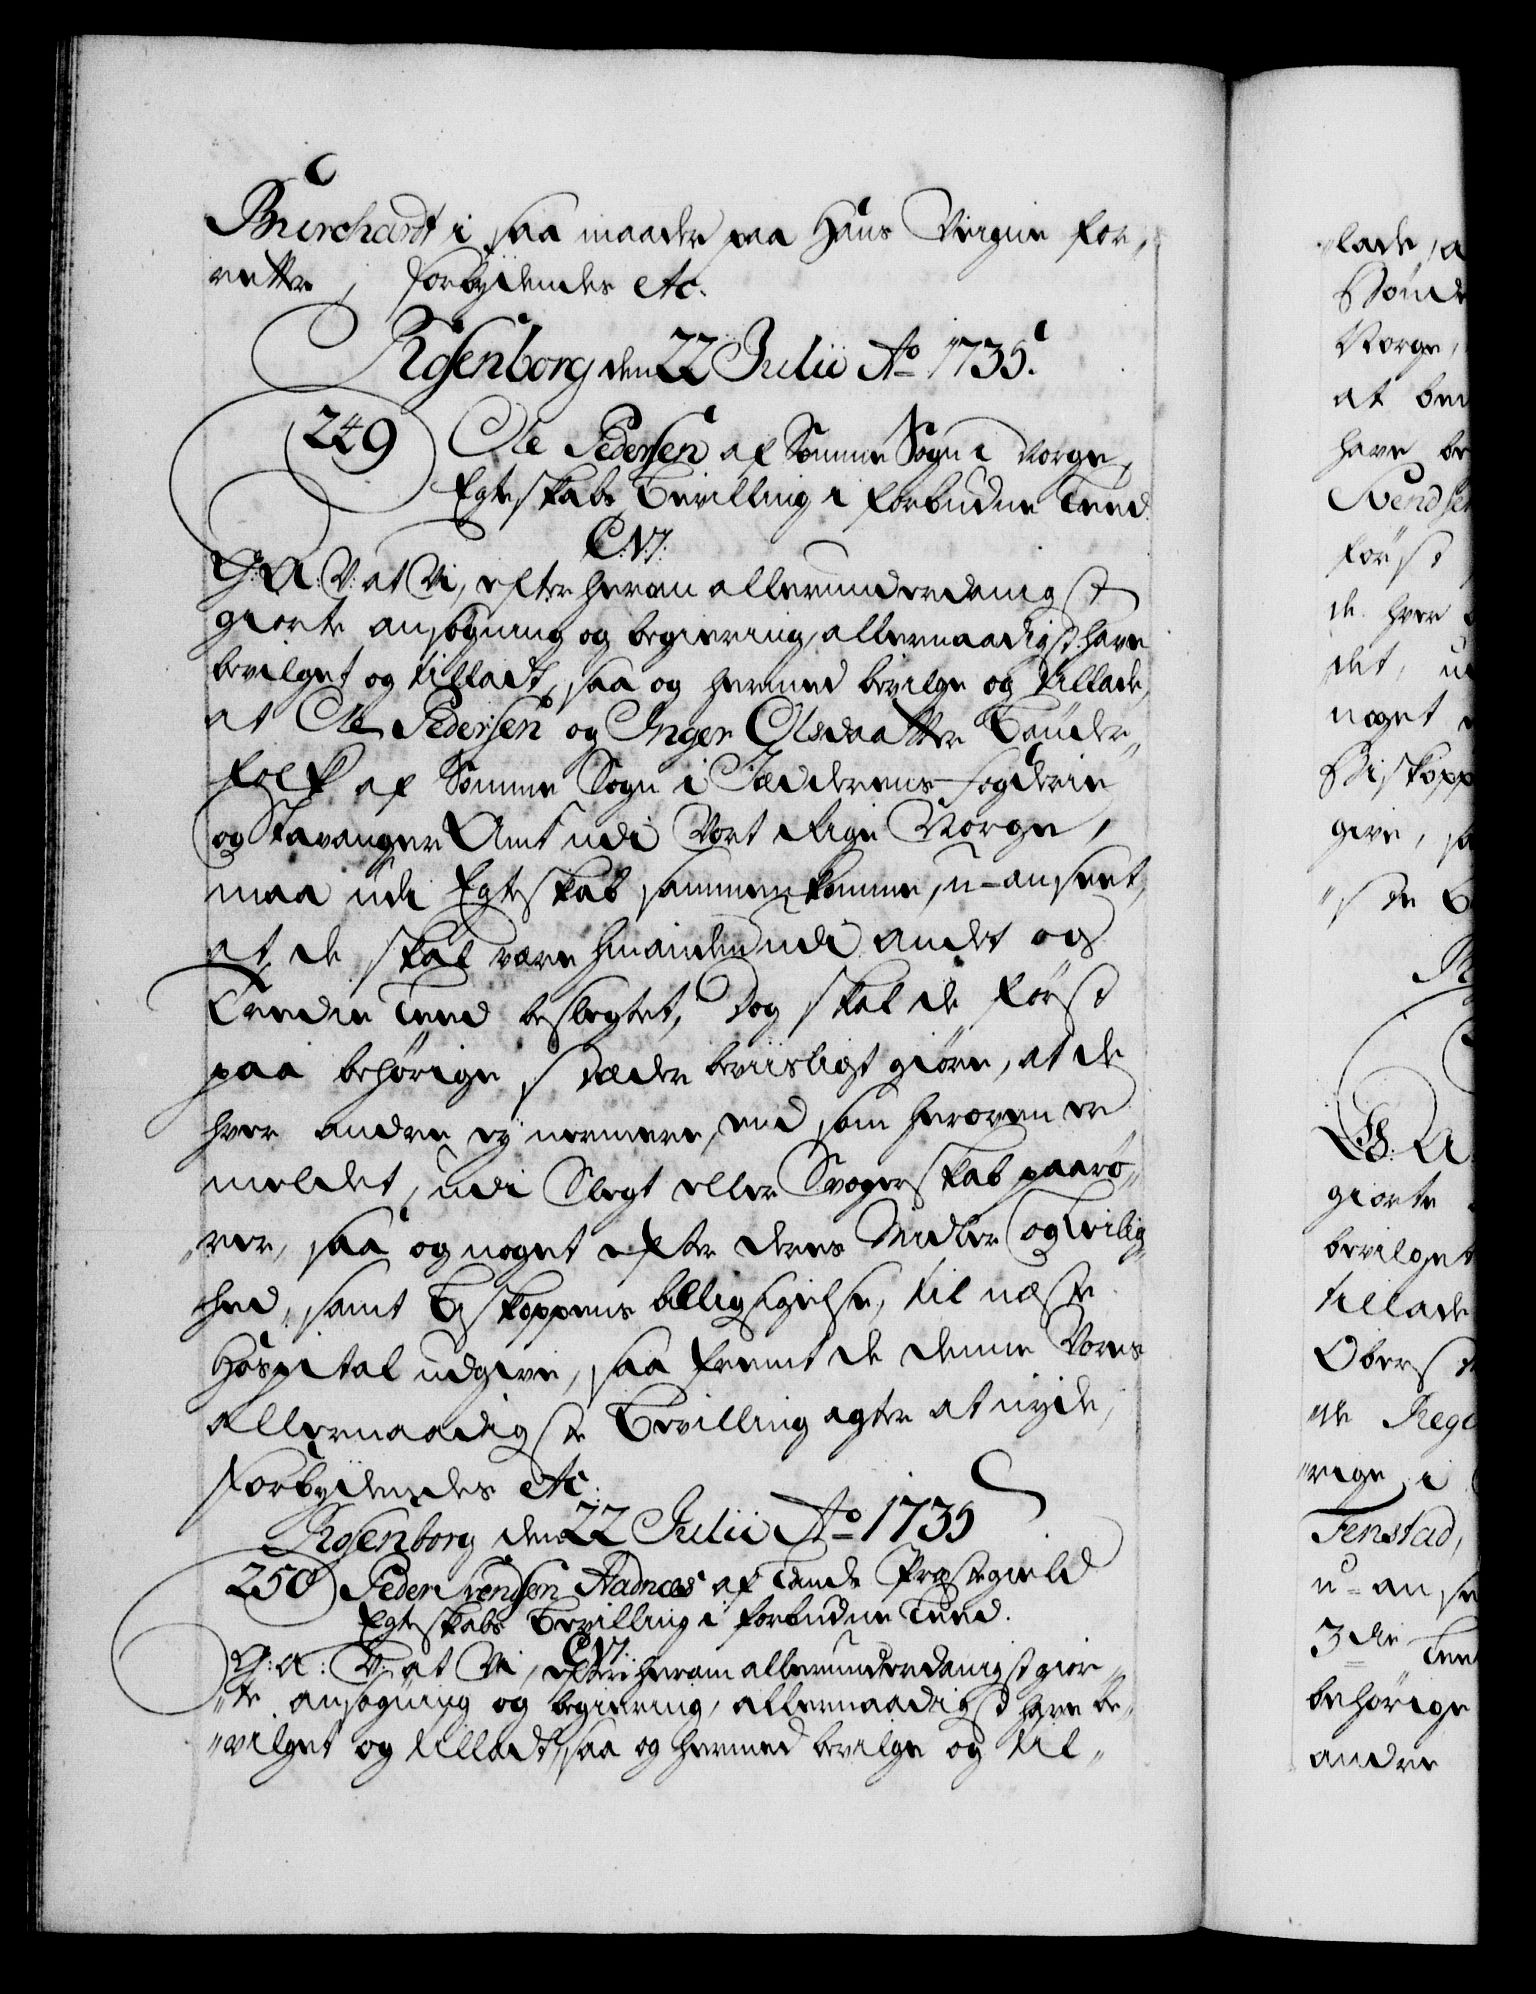 Burchardt i saa maader paa Hans Veigne for„
rette, forbydendes etc.
Rosenborg den 22 Julii Ao 1735.
249 Ole Pedersen af Somme Sogn i Norge,
Egteskabs Bevilling i forbudne Leed.
C.VI.
G: A: V: at Vi, efter herom allerunderdanigst
giorte ansøgning og begiering, allernaadigst have
bevilget og tilladt, saa og hermed bevilge og tillade,
at Ole Pedersen og Inger Olsdaatter Bønder„
folk af Somme Sogn i Jædderens fogderie
og Stavanger Amt udi Vort Rige Norge,
maa udi Egteskab sammenkomme, u-anseet,
at de skal være hinanden udi andet og
Tredie Leed beslegtet, Dog skal de først
paa behørige stæder beviisligt giøre, at de
hver andre ey nermere, end som heroven er
meldet, udi Slegt eller Svogerskab paarø„
rer, saa og noget efter deres Midler og Leilig„
hed, samt Biskoppens billigsigelse, til næste
Hospital udgive, saa fremt de denne Vores
allernaadigste Bevilling agter at nyde,
forbydendes etc.
Rosenborg den 22 Julii Ao 1735
250 Peder Svendsen Aadnæs af Lunde Præstegield
Egteskabs Bevilling i forbudne Leed.
C.VI.
G: A: V: at Vi, efter herom allerunderdanigst gior„
„te ansøgning og begiering, allernaadigst have be„
„vilget og tilladt, saa og hermed bevilge og til„
„lade, a
Bønde
Norge,
at bem
have be
Svendsen
først
de hver
det, u
noget
Biskopp
give, sa
„ste B
G: A
giorte
bevilget
tillade
Oberst
„de Rege
„rige i
Tenstad,
u-anse
3die Lee
behørige
andre